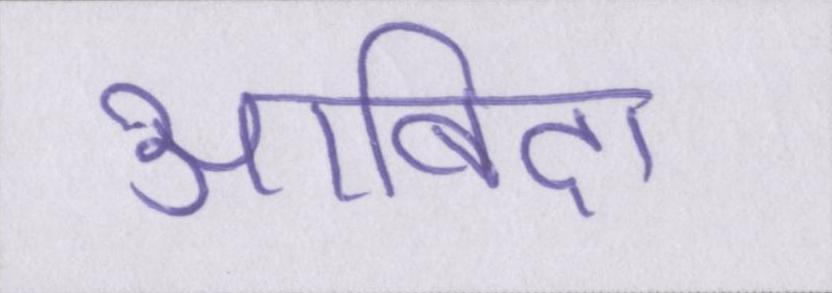 आबिदा